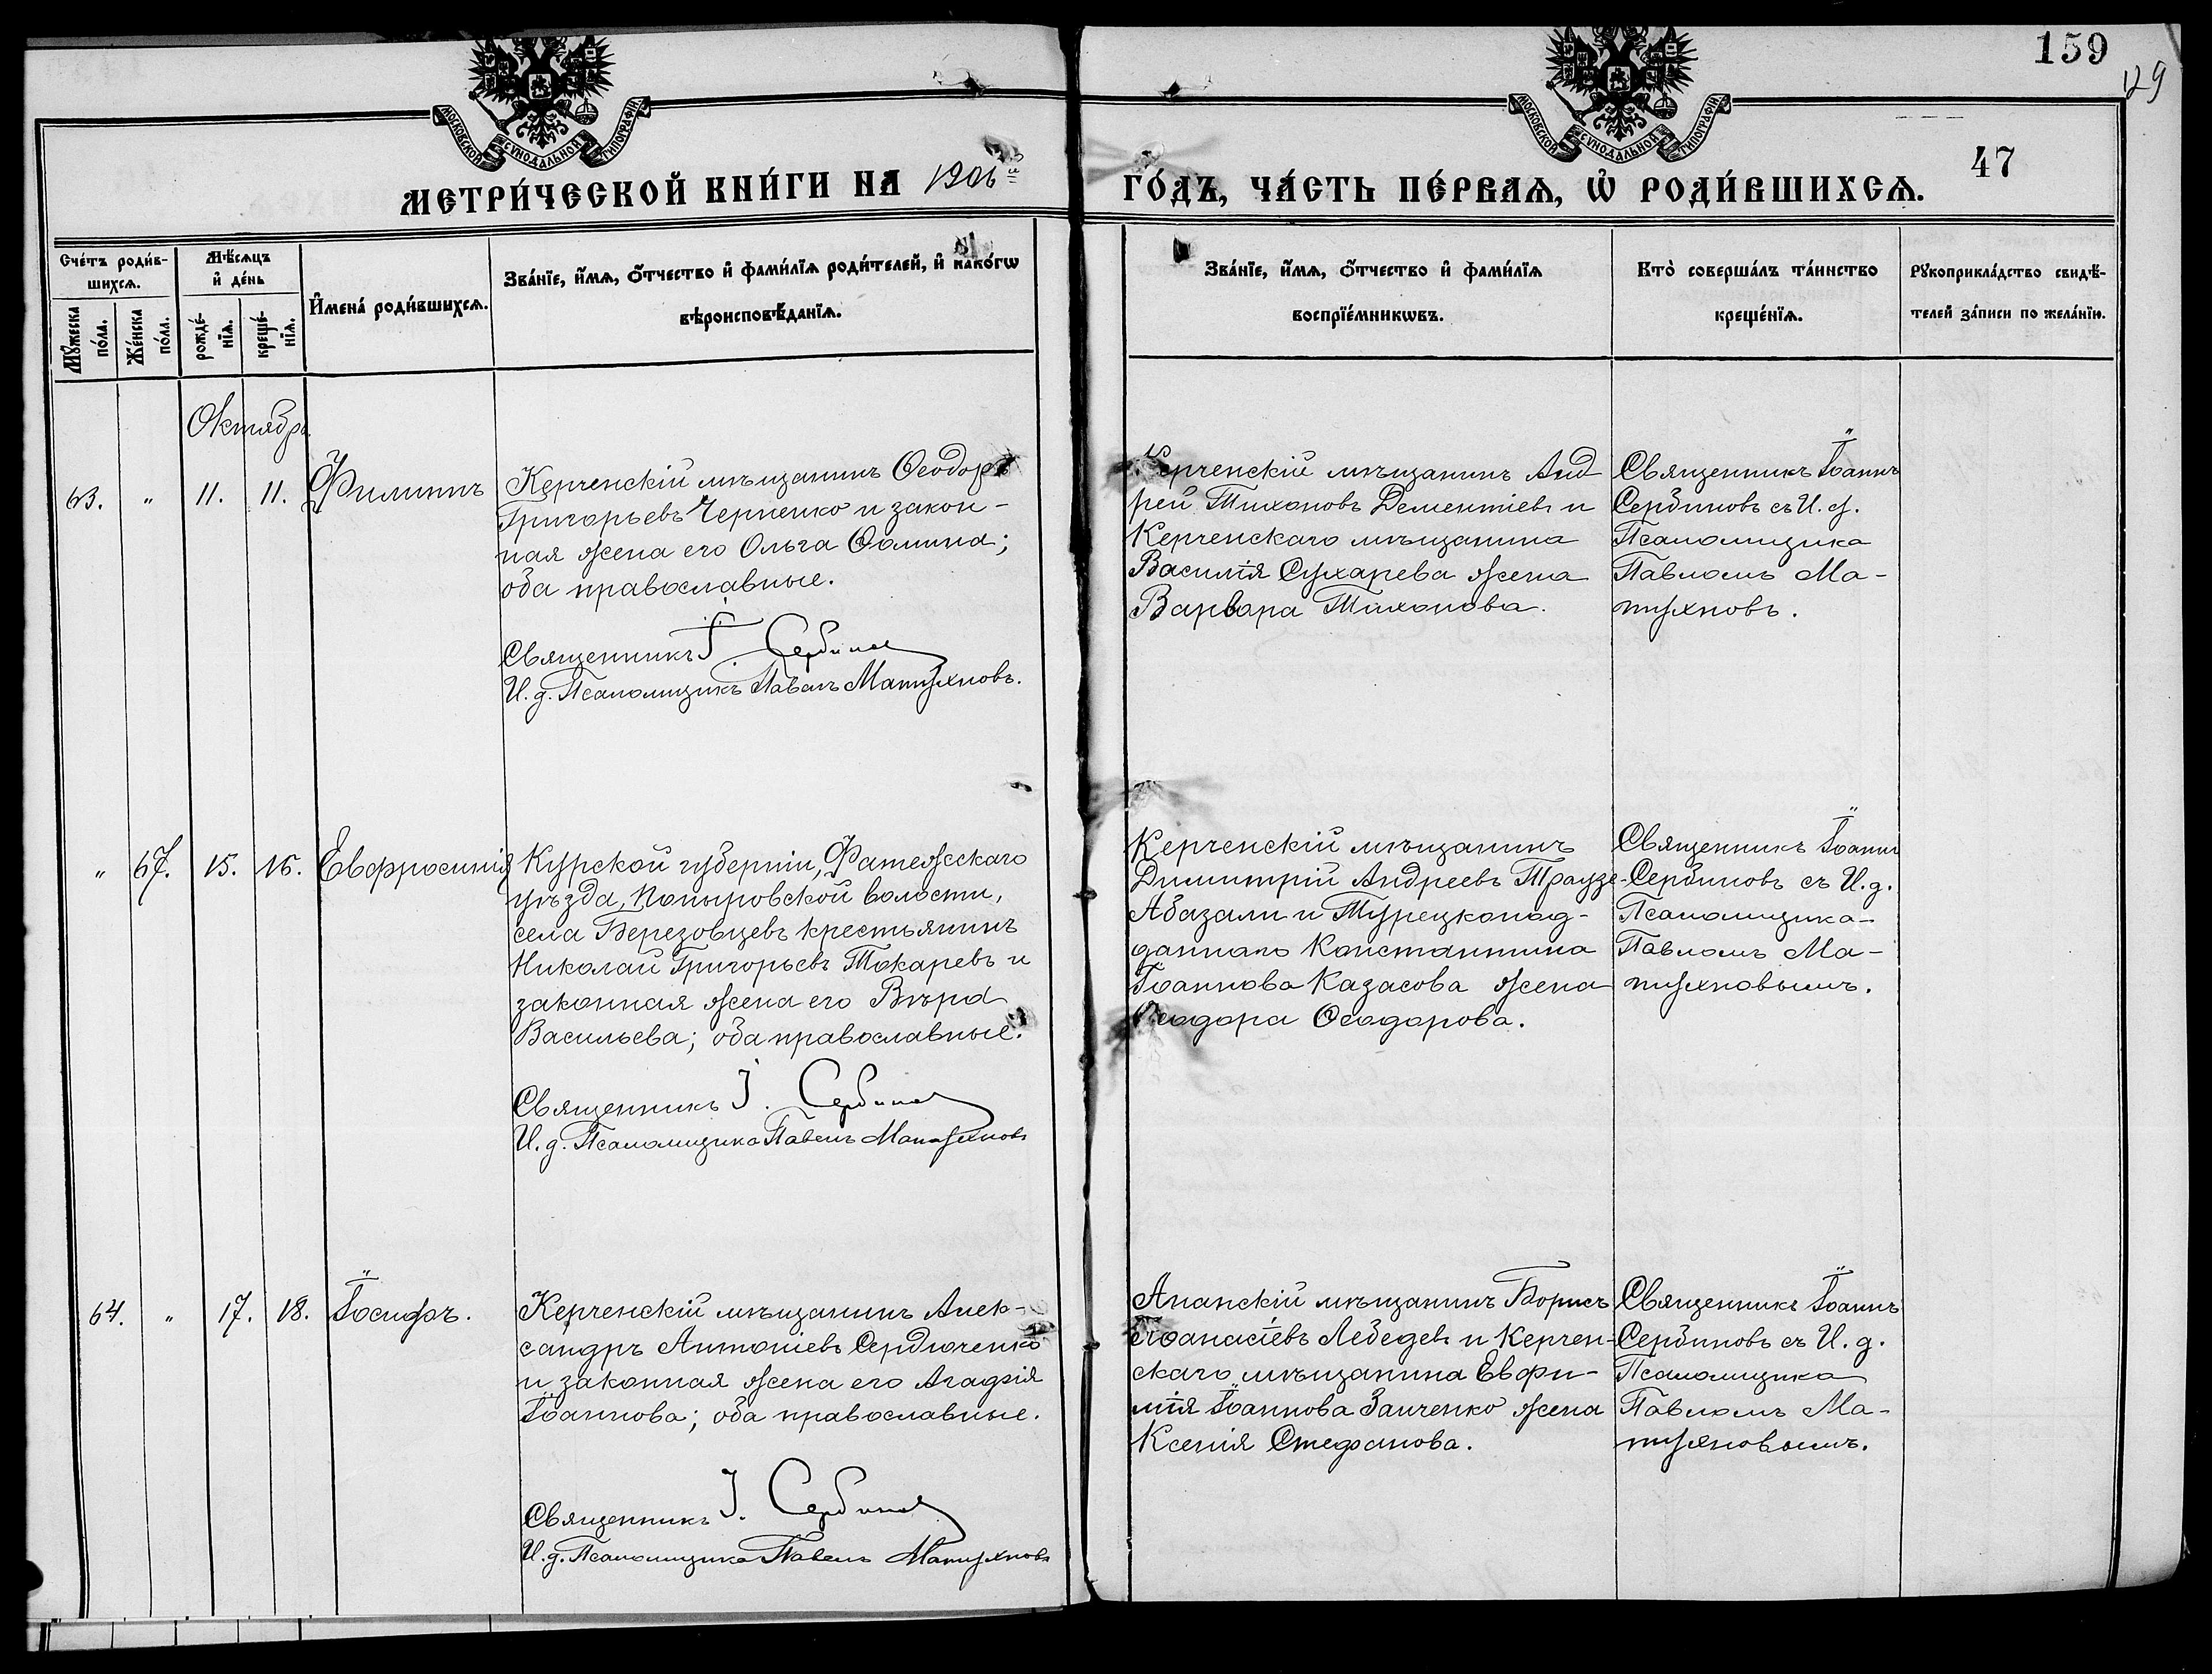 159
129
МОСКОВСКОЙ СѴНОДАЛЬНОЙ ТИПОГРАФІИ
МОСКОВСКОЙ СѴНОДАЛЬНОЙ ТИПОГРАФІИ
47
МЕТРИ́ЧЕСКОЙ КНИ́ГИ НА 1906 ГО́ДЪ, ЧА́СТЬ ПЕ́РВАѦ, Ѡ҆ РОДИ́ВШИХСѦ.
Сче́тъ роди́в-
шихсѧ.
Мꙋ́жеска по́ла.
Же́нска по́ла.
Мѣ́сѧцъ
и҆ де́нь
рожде́-
нїѧ.
креще́-
нїѧ.
И҆мена̀ роди́вшихсѧ.
Зва́нїе, и҆́мѧ, ѻ҆́тчество и҆ фами́лїѧ роди́телей, и҆ како́гѡ
вѣроисповѣ́данїѧ.
Зва́нїе, и҆́мѧ, ѻ҆́тчество и҆ фами́лїѧ
воспрїе́мникѡвъ.
Кто̀ соверша́лъ та́инство
креще́нїѧ.
Рꙋкоприкла́дство свидѣ́-
телей за́писи по жела́нїю.
Октябрь
63. " 11. 11. Филиппъ
Керченскій мѣщанинъ Ѳеодоръ
Григорьевъ Черненко и закон-
ная жена его Ольга Ѳомина;
оба православные.
Священникъ І. Сербиновъ
И. д. Псаломщикъ Павелъ Матухновъ.
Керченскій мѣщанинъ Анд
рей Тихоновъ Дементіевъ и
Керченскаго мѣщанина
Василія Сухарева жена
Варвара Тихонова.
Священникъ Іоаннъ
Сербиновъ съ И. д.
Псаломщика
Павломъ Ма-
тухновъ.
" 67. 15. 16. Евфросинія
Курской губерніи, Фатежскаго
уѣзда, Поныровской волости,
села Березовцевъ крестьянинъ
Николай Григорьевъ Токаревъ и
законная жена его Вѣра
Васильева; оба православные.
Священникъ І. Сербиновъ
И. д. Псаломщика Павелъ Матухновъ
Керченскій мѣщанинъ
Димитрій Андреевъ Траузе-
Абазали и Турецкопод-
даннаго Константина
Іоаннова Казасова жена
Ѳеодора Ѳеодорова.
Священникъ Іоаннъ
Сербиновъ съ И. д.
Псаломщика
Павломъ Ма-
тухновымъ.
64. " 17. 18. Іосифъ.
Керченскій мѣщанинъ Алек-
сандръ Антоніевъ Сердюченко
и законная жена его Агафія
Іоаннова; оба православные.
Священникъ І. Сербиновъ
И. д. Псаломщика Павелъ Матухновъ
Анапскій мѣщанинъ Борисъ
Аѳанасіевъ Лебедевъ и Керчен-
скаго мѣщанина Евфи-
мія Іоаннова Занченко жена
Ксенія Стефанова.
Священникъ Іоаннъ
Сербиновъ съ И. д.
Псаломщика
Павломъ Ма-
тухновымъ.